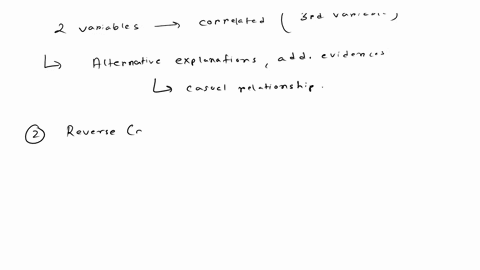 2 variables → correlated ( 3rd variable)
↳ Alternative explanations, add. evidences
↳ casual relationship.
② Reverse Ca